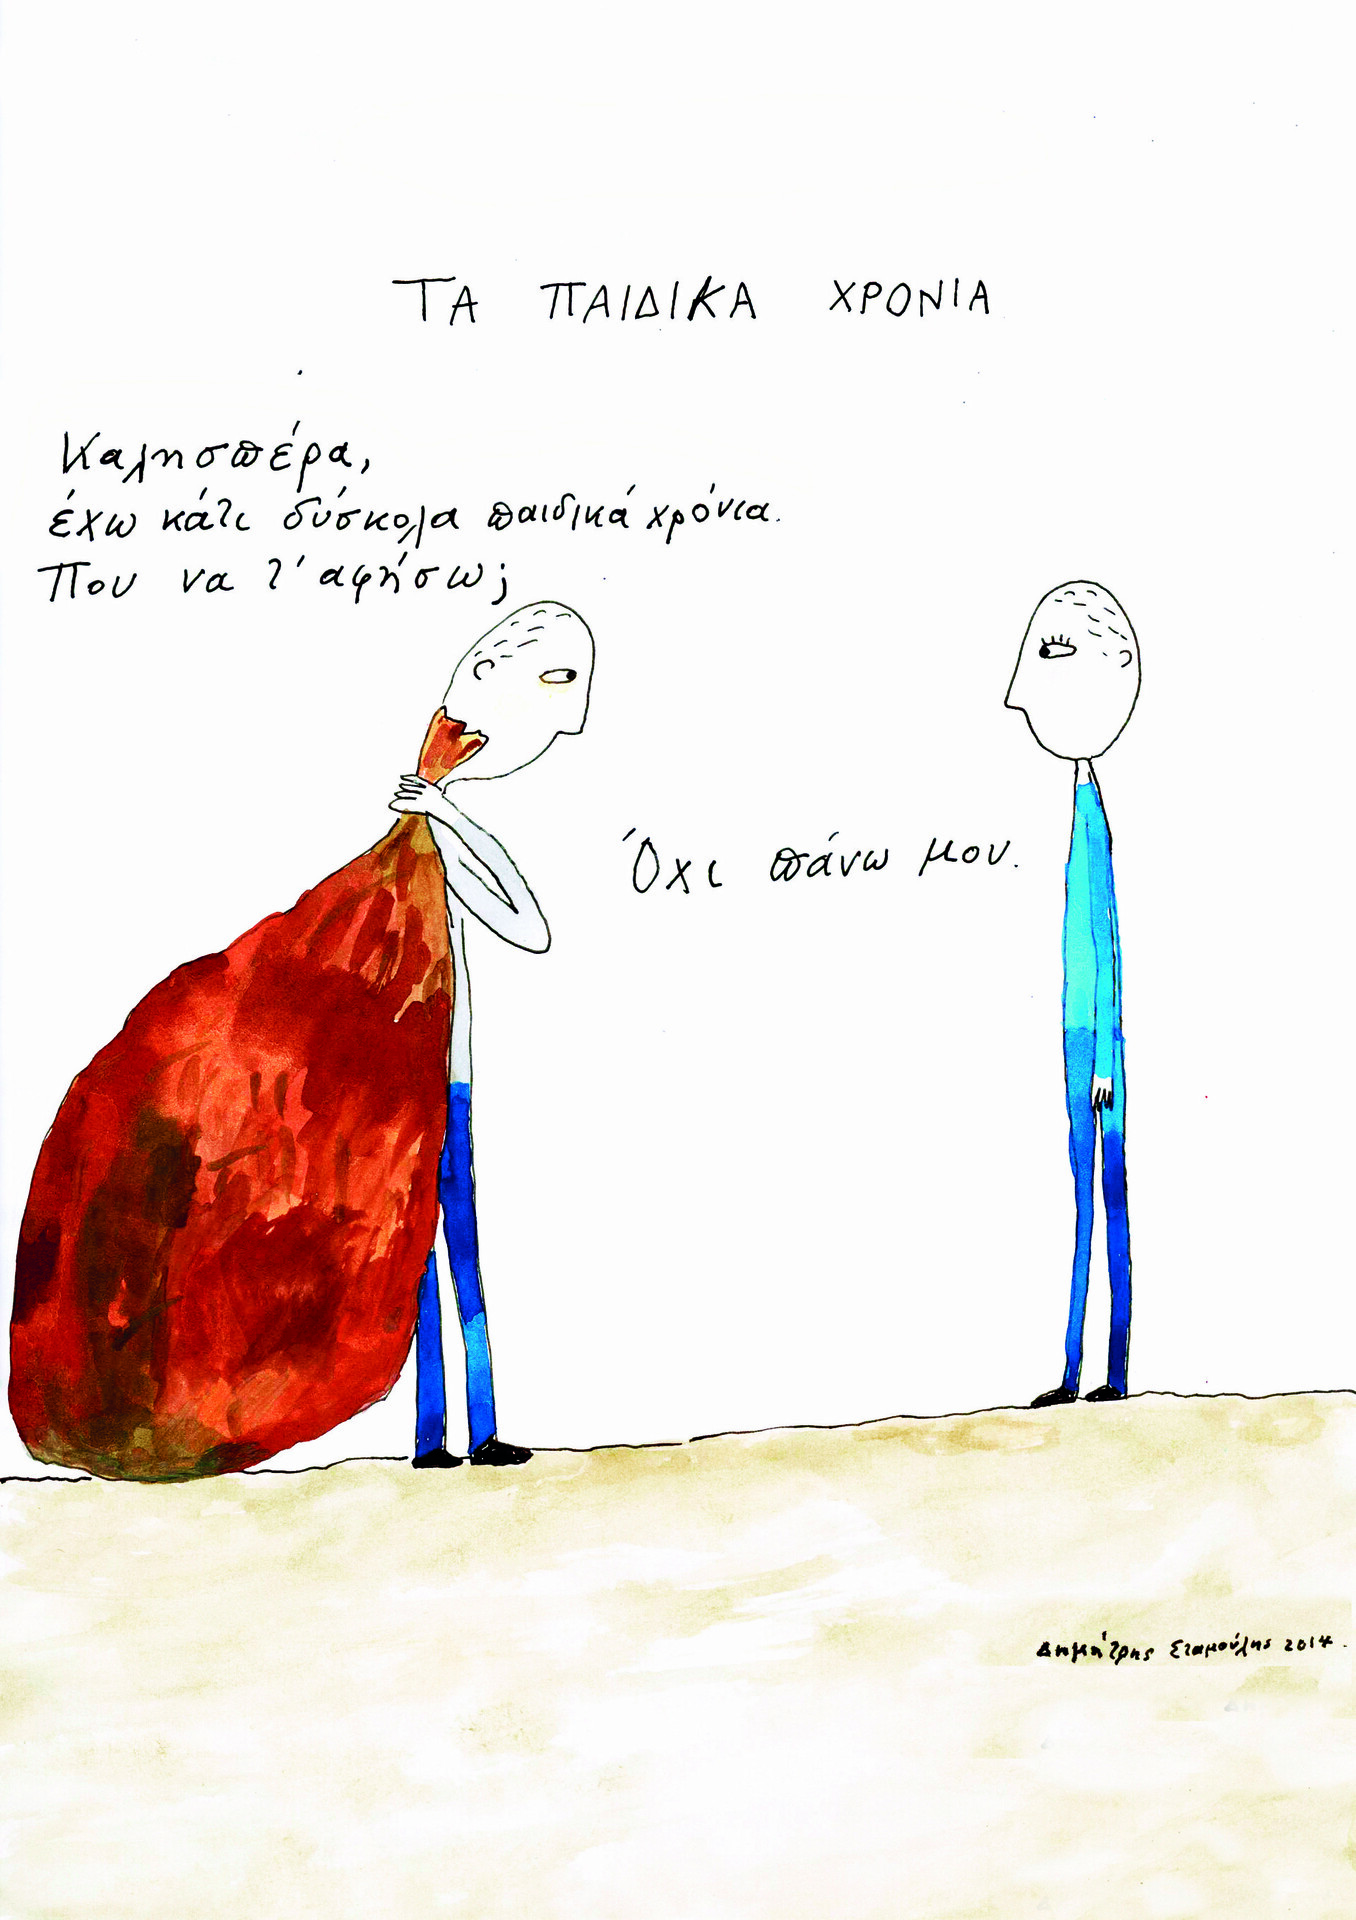 ΤΑ ΠΑΙΔΙΚΑ ΧΡΟΝΙΑ
Καλησπέρα,
έχω κάτι δύσκολα παιδικά χρόνια.
Που να τ' αφήσω;
Όχι πάνω μου.
Δημήτρης Σταμούλης 2014.